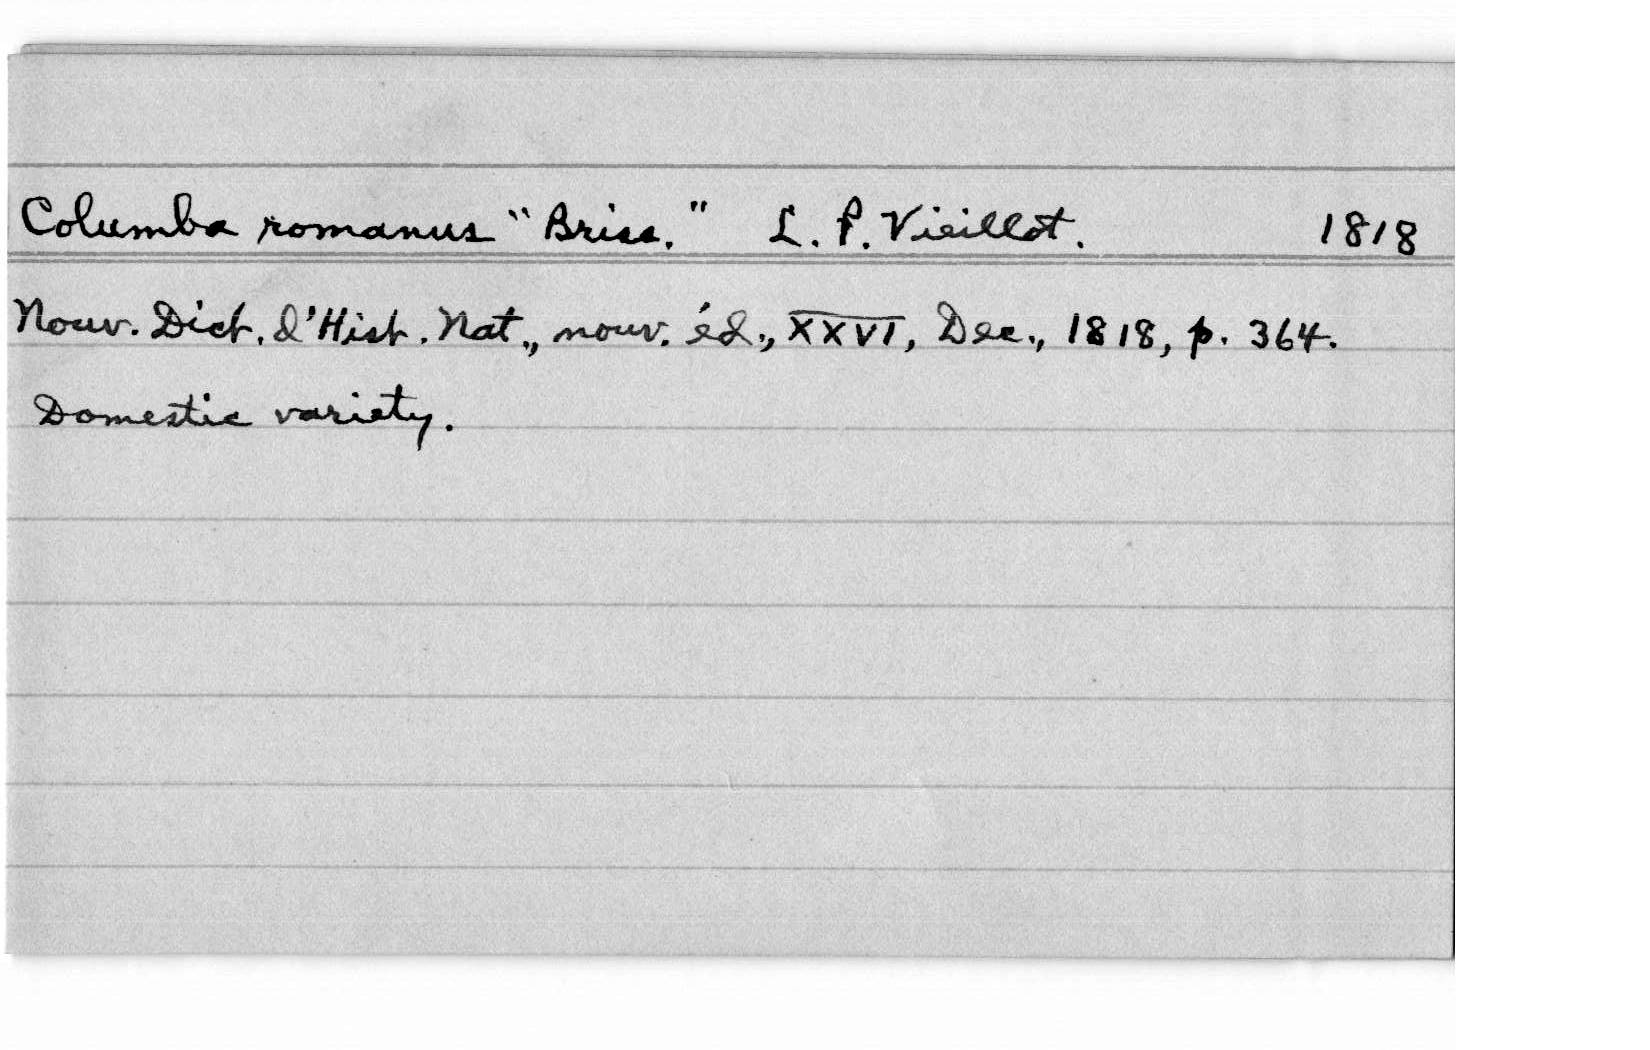 Columba romanus "Briss." L. P. Vieillot. 1818
Nouv. Dict. d'Hist. Nat., nouv. éd., XXVI, Dec., 1818, p. 364.
Domestic variety.